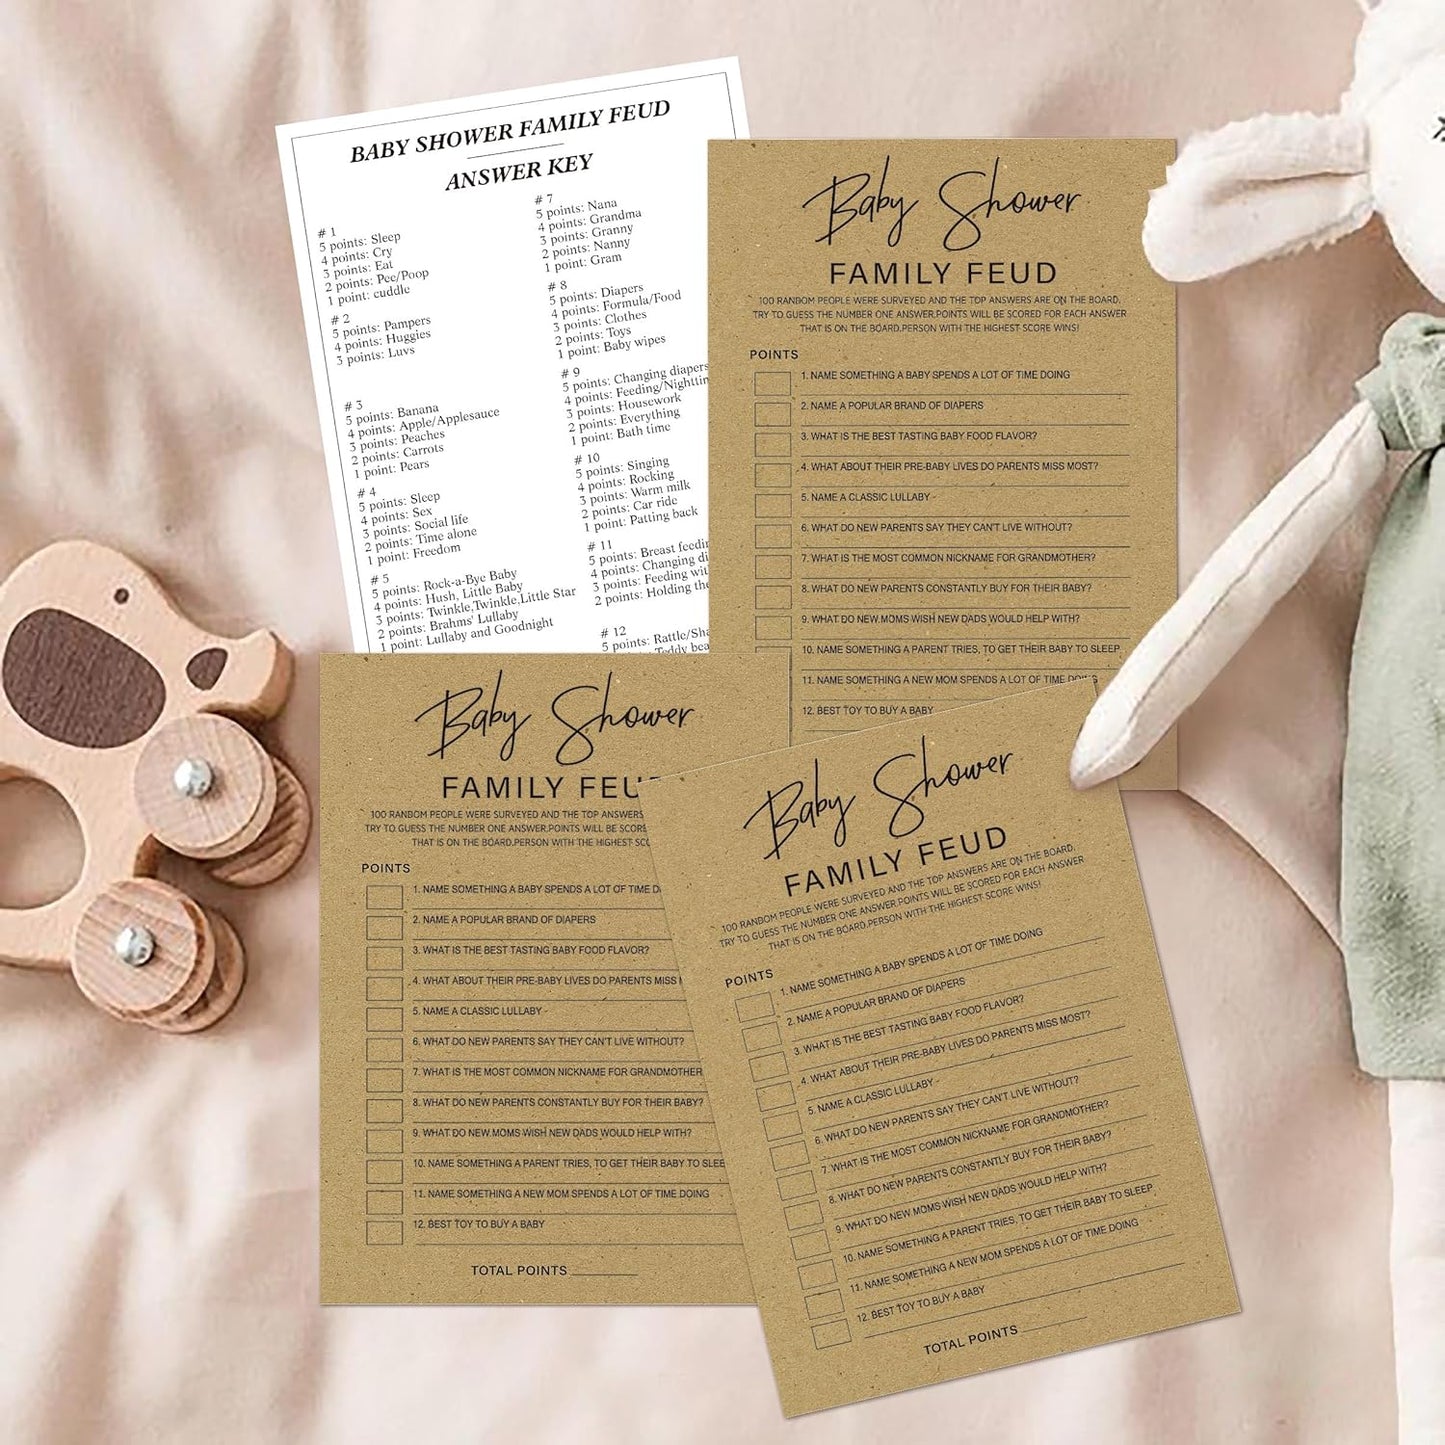 BABY SHOWER FAMILY FEUD
ANSWER KEY
# 1
5 points: Sleep
4 points: Cry
3 points: Eat
2 points: Pee/Poop
1 point: cuddle
# 2
5 points: Pampers
4 points: Huggies
3 points: Luvs
# 3
5 points: Banana
4 points: Apple/Applesauce
3 points: Peaches
2 points: Carrots
1 point: Pears
# 4
5 points: Sleep
4 points: Sex
3 points: Social life
2 points: Time alone
1 point: Freedom
# 5
5 points: Rock-a-Bye Baby
4 points: Hush, Little Baby
3 points: Twinkle,Twinkle,Little Star
2 points: Brahms' Lullaby
1 point: Lullaby and Goodnight
# 7
5 points: Nana
4 points: Grandma
3 points: Granny
2 points: Nanny
1 point: Gram
# 8
5 points: Diapers
4 points: Formula/Food
3 points: Clothes
2 points: Toys
1 point: Baby wipes
# 9
5 points: Changing diapers
4 points: Feeding/Nighttim
3 points: Housework
2 points: Everything
1 point: Bath time
# 10
5 points: Singing
4 points: Rocking
3 points: Warm milk
2 points: Car ride
1 point: Patting back
# 11
5 points: Breast feedin
4 points: Changing di
3 points: Feeding wit
2 points: Holding the
# 12
5 points: Rattle/Sha
Teddy bea
Baby Shower
FAMILY FEUD
100 RANBOM PEOPLE WERE SURVEYED AND THE TOP ANSWERS ARE ON THE BOARD.
TRY TO GUESS THE NUMBER ONE ANSWER.POINTS WILL BE SCORED FOR EACH ANSWER
THAT IS ON THE BOARD.PERSON WITH THE HIGHEST SCORE WINS!
POINTS
1. NAME SOMETHING A BABY SPENDS A LOT OF TIME DOING
2. NAME A POPULAR BRAND OF DIAPERS
3. WHAT IS THE BEST TASTING BABY FOOD FLAVOR?
4. WHAT ABOUT THEIR PRE-BABY LIVES DO PARENTS MISS MOST?
5. NAME A CLASSIC LULLABY -
6. WHAT DO NEW PARENTS SAY THEY CAN'T LIVE WITHOUT?
7. WHAT IS THE MOST COMMON NICKNAME FOR GRANDMOTHER?
8. WHAT DO NEW PARENTS CONSTANTLY BUY FOR THEIR BABY?
9. WHAT DO NEW MOMS WISH NEW DADS WOULD HELP WITH?
10. NAME SOMETHING A PARENT TRIES, TO GET THEIR BABY TO SLEEP
11. NAME SOMETHING A NEW MOM SPENDS A LOT OF TIME DOING
12. BEST TOY TO BUY A BABY
Baby Shower
FAMILY FEU
100 RANBOM PEOPLE WERE SURVEYED AND THE TOP ANSWERS
TRY TO GUESS THE NUMBER ONE ANSWER.POINTS WILL BE SCORE
THAT IS ON THE BOARD.PERSON WITH THE HIGHEST SCO
POINTS
1. NAME SOMETHING A BABY SPENDS A LOT OF TIME D
2. NAME A POPULAR BRAND OF DIAPERS
3. WHAT IS THE BEST TASTING BABY FOOD FLAVOR?
4. WHAT ABOUT THEIR PRE-BABY LIVES DO PARENTS MISS
5. NAME A CLASSIC LULLABY -
6. WHAT DO NEW PARENTS SAY THEY CAN'T LIVE WITHOUT?
7. WHAT IS THE MOST COMMON NICKNAME FOR GRANDMOTHER
8. WHAT DO NEW PARENTS CONSTANTLY BUY FOR THEIR BABY?
9. WHAT DO NEW MOMS WISH NEW DADS WOULD HELP WITH?
10. NAME SOMETHING A PARENT TRIES, TO GET THEIR BABY TO SLEE
11. NAME SOMETHING A NEW MOM SPENDS A LOT OF TIME DOING
12. BEST TOY TO BUY A BABY
TOTAL POINTS
Baby Shower
FAMILY FEUD
100 RANBOM PEOPLE WERE SURVEYED AND THE TOP ANSWERS ARE ON THE BOARD.
TRY TO GUESS THE NUMBER ONE ANSWER.POINTS WILL BE SCORED FOR EACH ANSWER
THAT IS ON THE BOARD.PERSON WITH THE HIGHEST SCORE WINS!
POINTS
1. NAME SOMETHING A BABY SPENDS A LOT OF TIME DOING
2. NAME A POPULAR BRAND OF DIAPERS
3. WHAT IS THE BEST TASTING BABY FOOD FLAVOR?
4. WHAT ABOUT THEIR PRE-BABY LIVES DO PARENTS MISS MOST?
5. NAME A CLASSIC LULLABY -
6. WHAT DO NEW PARENTS SAY THEY CAN'T LIVE WITHOUT?
7. WHAT IS THE MOST COMMON NICKNAME FOR GRANDMOTHER?
8. WHAT DO NEW PARENTS CONSTANTLY BUY FOR THEIR BABY?
9. WHAT DO NEW MOMS WISH NEW DADS WOULD HELP WITH?
10. NAME SOMETHING A PARENT TRIES, TO GET THEIR BABY TO SLEEP
11. NAME SOMETHING A NEW MOM SPENDS A LOT OF TIME DOING
12. BEST TOY TO BUY A BABY
TOTAL POINTS